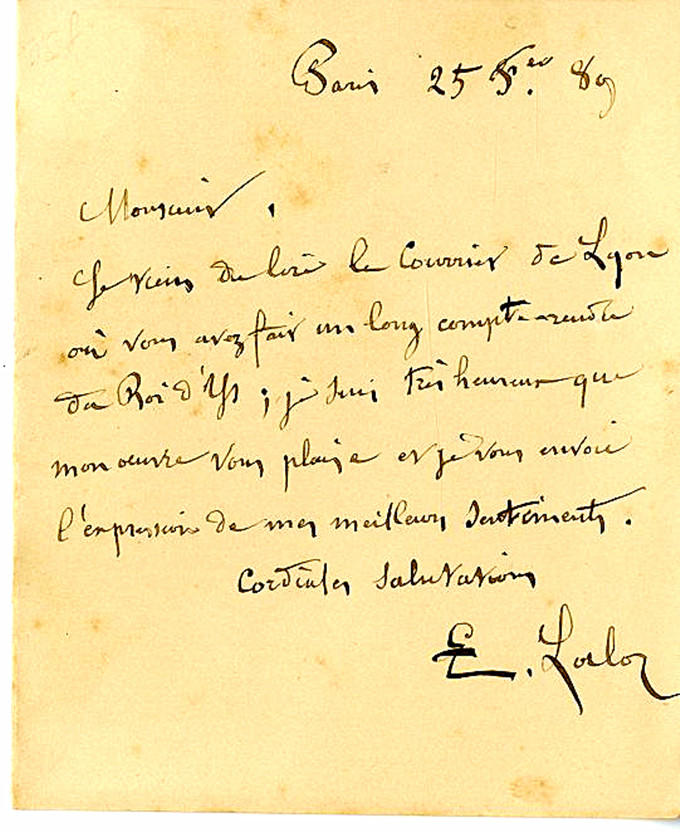 Paris 25 Fer 89
Monsieur,
Je viens de lire le Courrier de Lyon
où vous avez fait un long compte-rendu
du Roi d'Ys ; je suis très heureux que
mon œuvre vous plaise et je vous envoie
l'expression de mes meilleurs sentiments.
Cordiales salutations
E. Lalo